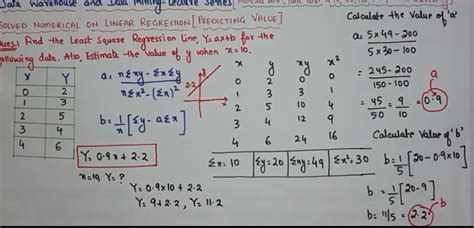 Data Warehouse and Data Mining-Lecture Series
SOLVED NUMERICAL ON LINEAR REGRESSION [PREDICTING VALUE]
Ques:1 Find the Least Square Regression Line, Y=ax+b for the
following data. Also, Estimate the value of y when x=10.
X Y
0 2
1 3
2 5
3 4
4 6
a= nΣxy-ΣxΣy
nΣx²-(Σx)²
b= 1/n [Σy-aΣx]
Y= 0.9x+2.2
x=10, Y= ?
Y=0.9x10+2.2
Y=9+2.2, Y=11.2
2.2
x y xy x²
0 2 0 0
1 3 3 1
2 5 10 4
3 4 12 9
4 6 24 16
Σx=10 Σy=20 Σxy=49 Σx²=30
Calculate the value of 'a'
a= 5x49-200
5x30-100
= 245-200
150-100
a
= 45/50 = 9/10 = 0.9
Calculate Value of 'b'
b= 1/5 [20-0.9x10]
b= 1/5 [20-9]
b= 11/5 = 2.2
b